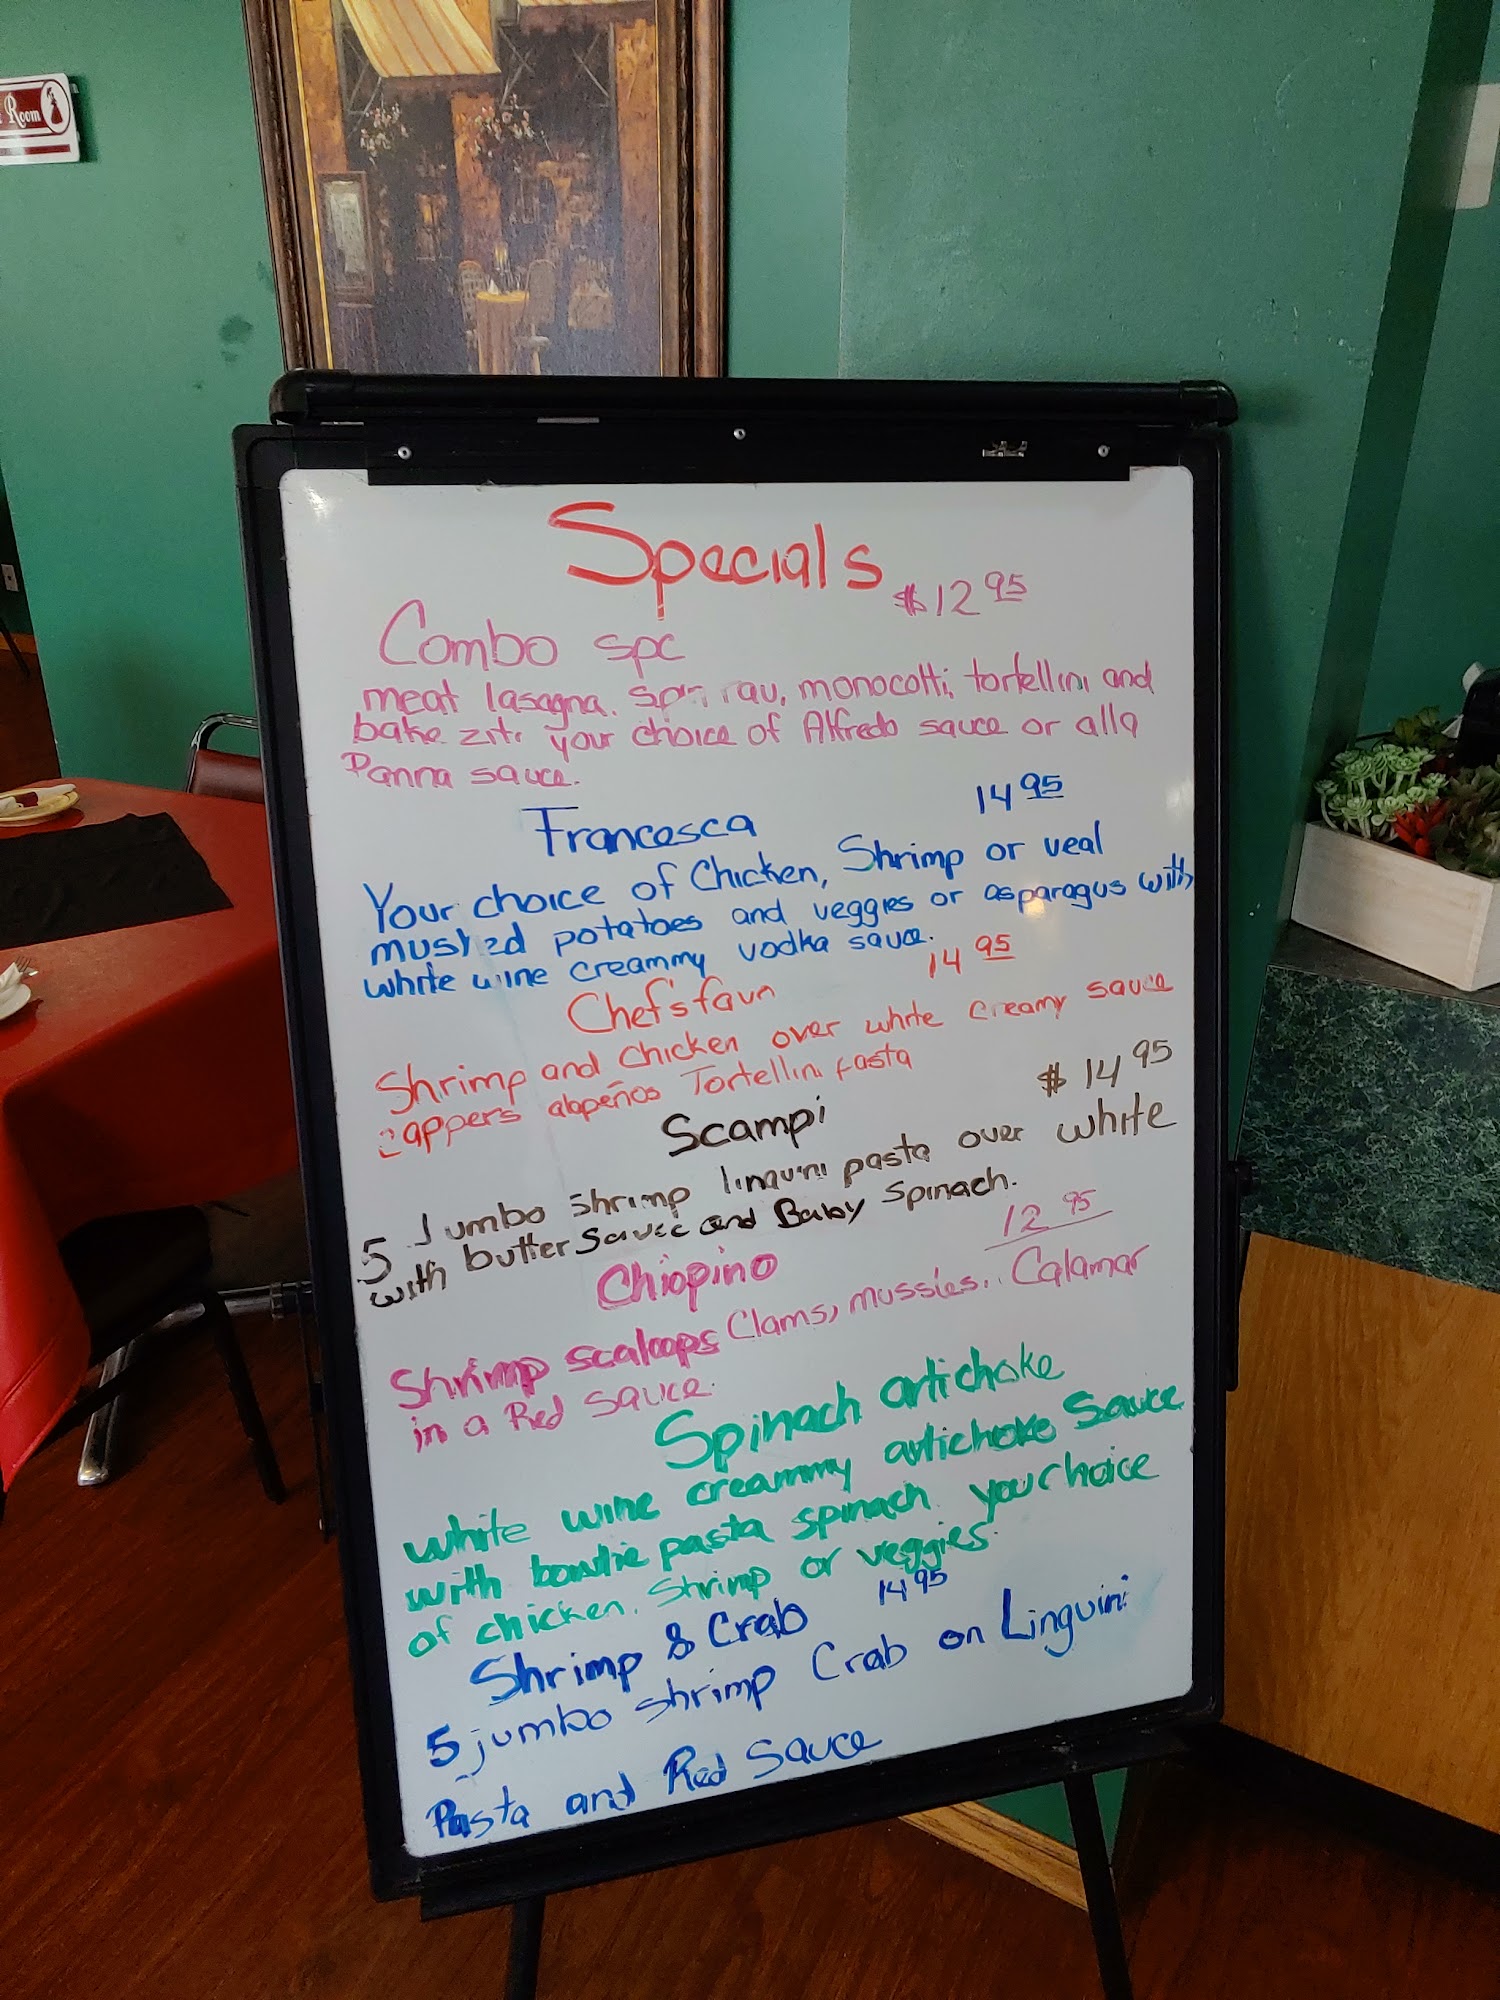 Room
Specials
$12 95
Combo spc
meat lasagna. monocotti, tortellini and
bake ziti your choice of Alfredo sauce or alla
Panna sauce.
Francesca 14 95
Your choice of Chicken, Shrimp or veal
mushed potatoes and veggies or asparagus with
white wine creammy vodka sauce.
Chef's favn 14 95
Shrimp and chicken over white creamy sauce
cappers alapeños Tortellini Pasta
Scampi $14 95
5 Jumbo shrimp linguini pasta over white
with butter sauce and Baby Spinach.
Chiopino 12 95
Shrimp scaloops Clams, mussies.. Calamar
in a Red sauce.
Spinach artichoke
white wine creammy artichoke Sauce
with bowtie pasta spinach your choice
of chicken. Shrimp or veggies.
Shrimp & Crab 14 95
5 jumbo shrimp Crab on Linguini
Pasta and Red Sauce